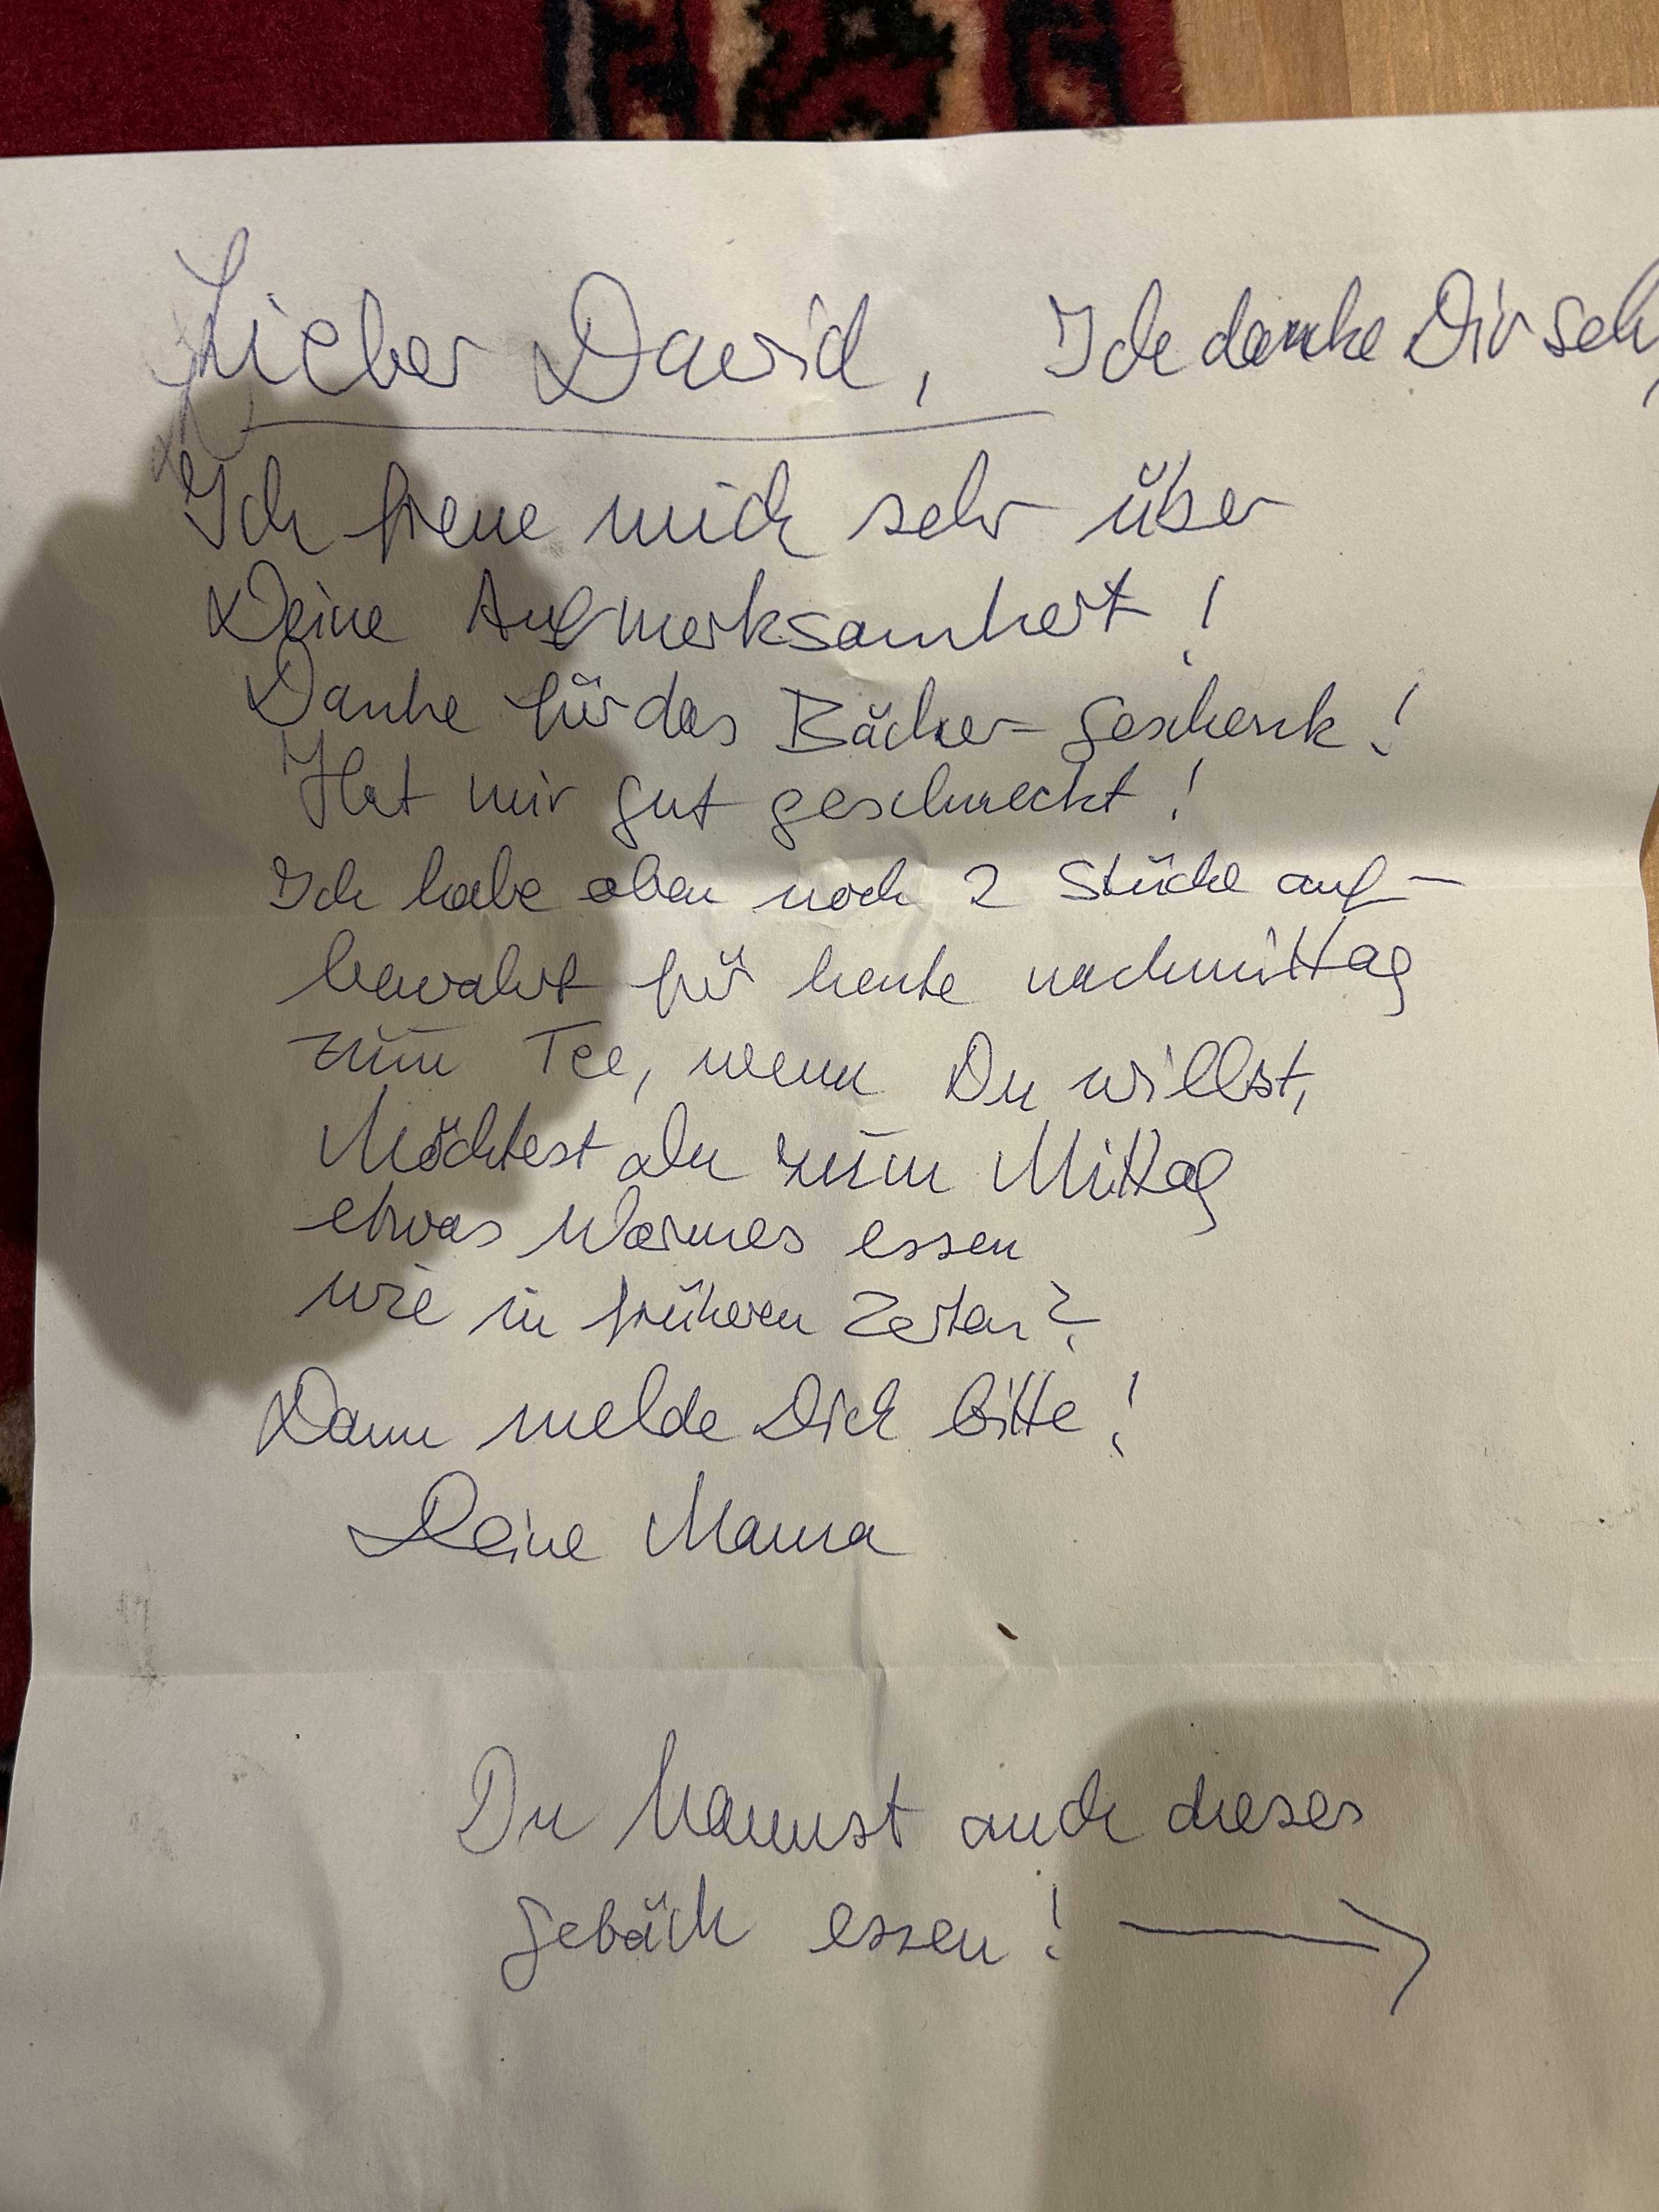 Lieber David, Ich danke Dir sehr
Ich freue mich sehr über
Deine Aufmerksamheit!
Danke für das Bäcker-Geschenk!
Hat mir gut geschmeckt!
Ich habe oben noch 2 Stücke auf-
bewahrt für heute nachmittag
zum Tee, wenn Du willst,
Möchtest du zum Mittag
etwas Warmes essen
wie in früheren Zeiten?
Dann melde Dich bitte!
Deine Mama
Du kannst auch dieses
Gebäck essen! →